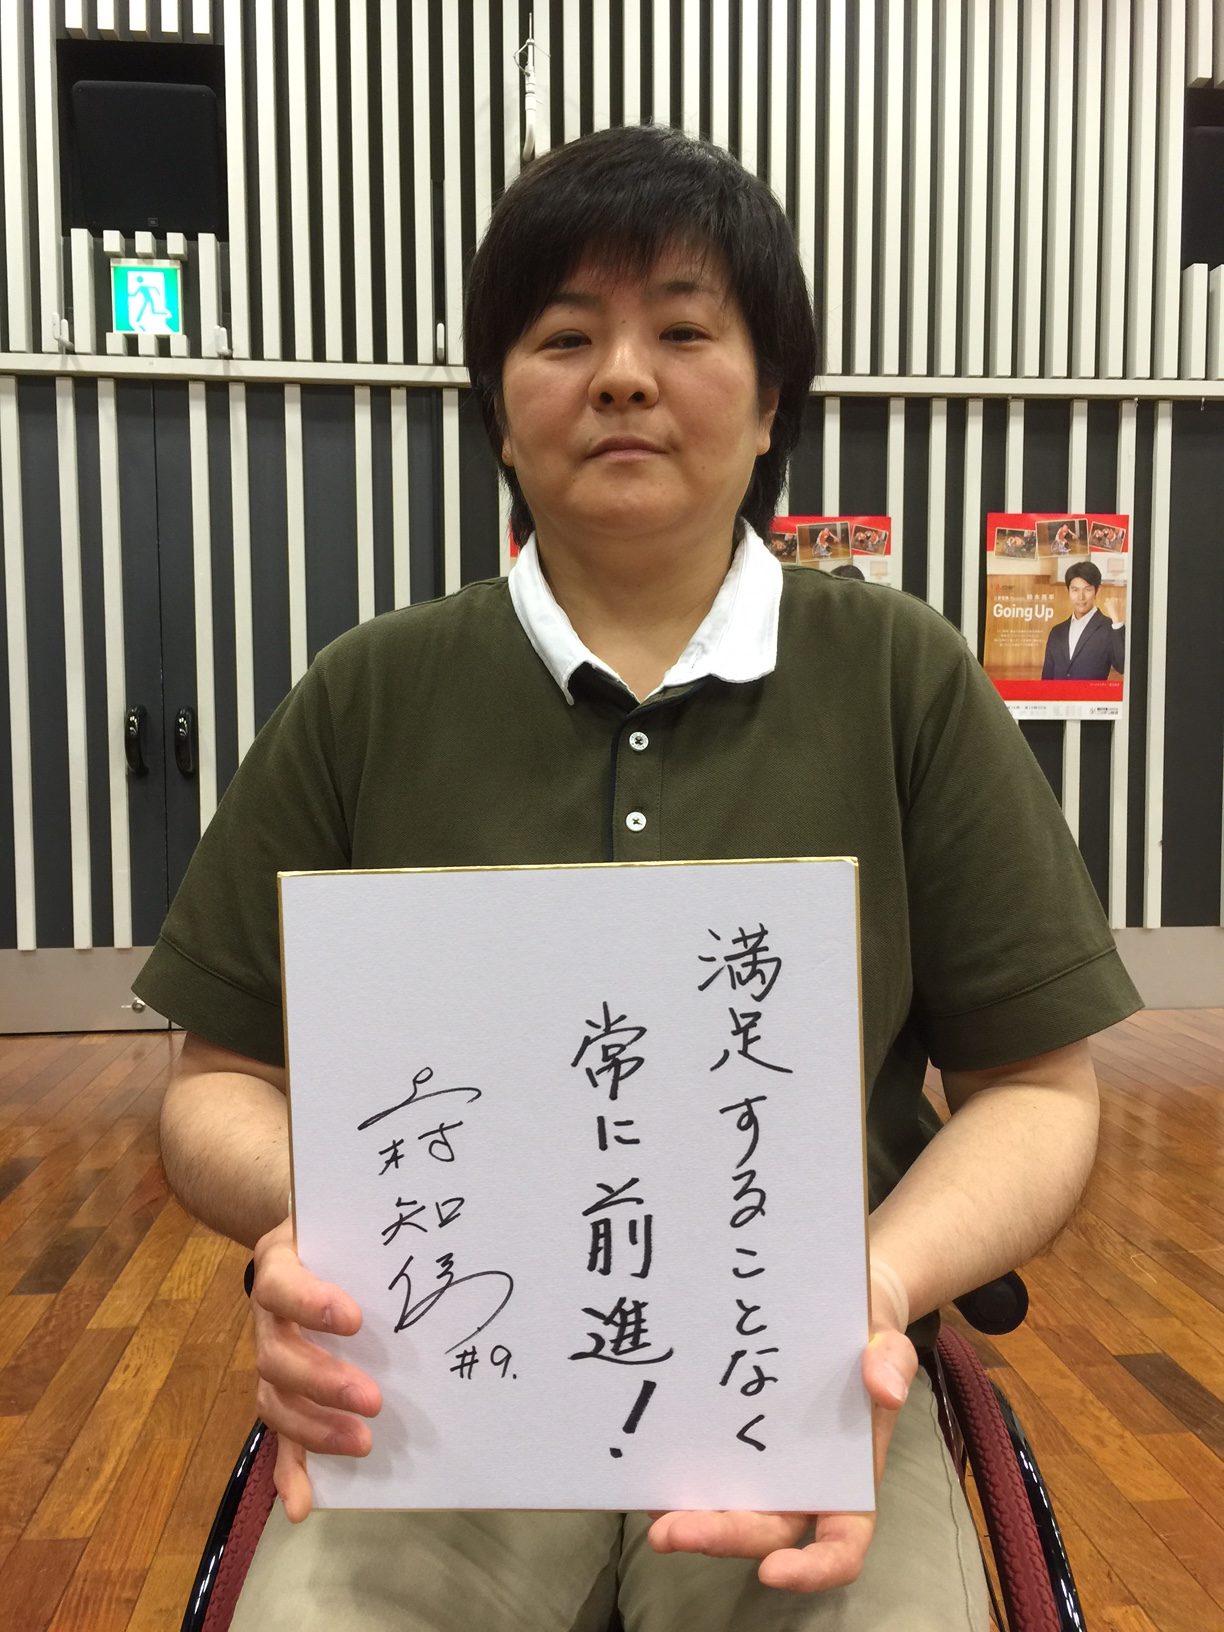 満足することなく
常に前進!
村知
#9.
Going Up